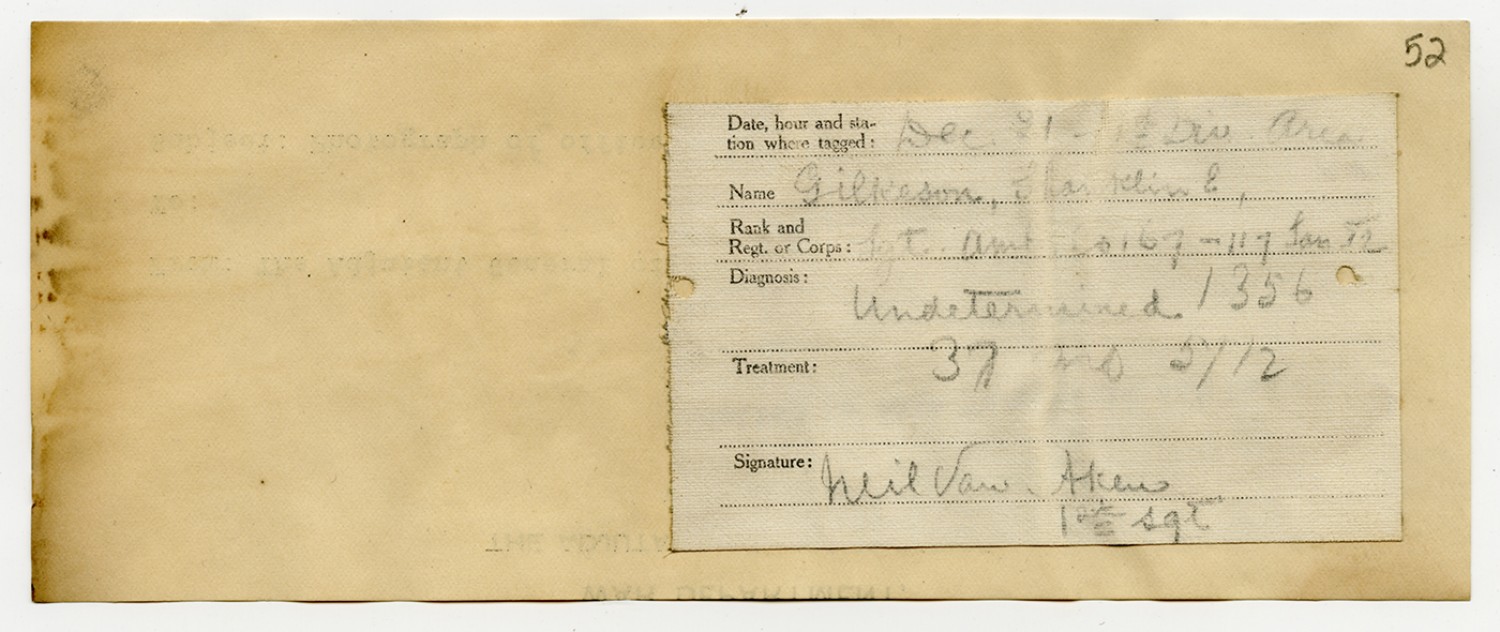 52
Date, hour and sta-
tion where tagged: Dec. 21st 1st Div. Area.
Name Gilkeson, Franklin E,
Rank and
Regt. or Corps: Sgt. Amb Co. 167 - 117 San
Diagnosis:
Undetermined 1356
Treatment: 37 2/12
Signature: Neil Van. Aken
1st Sgt
WAR DEPARTMENT,